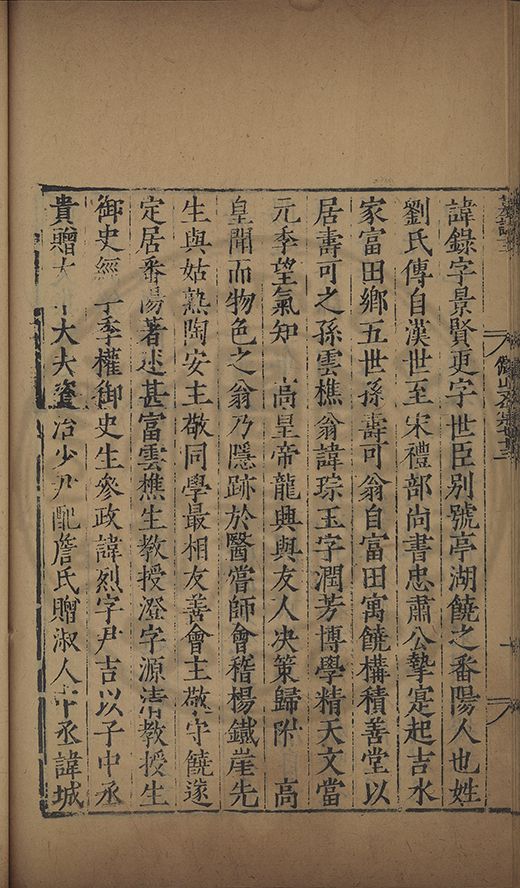 諱錄字景賢更字世臣別號亭湖饒之番陽人也姓
劉氏傳自漢世至宋禮部尚書忠肅公摯寔起吉水
家富田鄉五世孫壽可翁自富田寓饒構積善堂以
居壽可之孫雲樵翁諱琮玉字潤芳博學精天文當
元季望氣知 高皇帝龍興與友人决策歸附 高
皇聞而物色之翁乃隱跡於醫嘗師會稽楊鐵崖先
生與姑熟陶安主敬同學最相友善會主敬守饒遂
定居番陽著述甚富雲樵生教授澄字源清教授生
御史經 季權御史生參政諱烈字尹吉以子中丞
貴贈大 大夫資治少尹配詹氏贈淑人中丞諱城
墓誌三